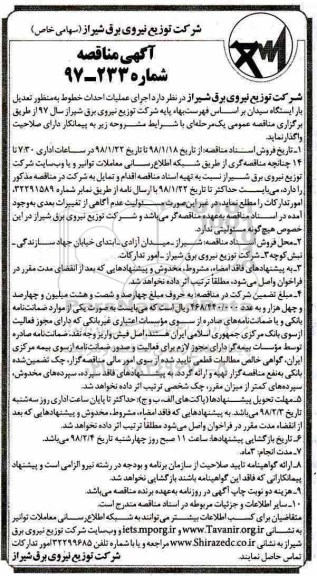 شرکت توزیع نیروی برق شیراز (سهامی خاص)
آگهی مناقصه
شماره ۲۳۳-۹۷
شرکت توزیع نیروی برق شیراز در نظر دارد اجرای عملیات احداث خطوط به‌منظور تعدیل
بار ایستگاه سیدان بر اساس فهرست‌بهاء پایه شرکت توزیع نیروی برق شیراز سال ۹۷ از طریق
برگزاری مناقصه عمومی یک‌مرحله‌ای با شرایط مشروحه زیر به پیمانکار دارای صلاحیت
واگذار نماید.
۱-تاریخ فروش اسناد مناقصه: از تاریخ ۹۸/۱/۱۸ تا تاریخ ۹۸/۱/۲۲ در ساعات اداری ۷:۳۰ تا
۱۴ چنانچه مناقصه‌گری از طریق شبکه اطلاع‌رسانی معاملات توانیر و یا وب‌سایت شرکت
توزیع نیروی برق شیراز نسبت به تهیه اسناد مناقصه اقدام و تمایل به شرکت در مناقصه مذکور
را دارد، می‌بایست حداکثر تا تاریخ ۹۸/۱/۲۲ با ارسال نامه از طریق نمابر شماره ۳۲۲۹۱۵۸۹،
امور تدارکات را مطلع نماید. در غیر این‌صورت مسئولیت عدم آگاهی از تغییرات بعدی به‌وجود
آمده در اسناد مناقصه به‌عهده مناقصه‌گر می‌باشد و شرکت توزیع نیروی برق شیراز در این
خصوص هیچ‌گونه مسئولیتی ندارد.
۲-محل فروش اسناد مناقصه: شیراز-میدان آزادی-ابتدای خیابان جهاد سازندگی-
نبش کوچه ۳-شرکت توزیع نیروی برق شیراز-امور تدارکات.
۳-به پیشنهادهای فاقد امضاء، مشروط، مخدوش و پیشنهادهایی که بعد از انقضای مدت مقرر در
فراخوان واصل می‌شود، مطلقاً ترتیب اثر داده نخواهد شد.
۴-مبلغ تضمین شرکت در مناقصه: به حروف مبلغ چهارصد و شصت و هشت میلیون و چهارصد
و چهل هزار و به عدد ۴۶۸/۴۴۰/۰۰۰ ریال است که می‌بایست به صورت یکی از موارد ضمانت‌نامه
بانکی و یا ضمانت‌نامه‌های صادره از سوی مؤسسات اعتباری غیربانکی که دارای مجوز فعالیت
از سوی بانک مرکزی جمهوری اسلامی ایران هستند، اصل فیش واریز وجه نقد، ضمانت‌نامه صادره
توسط مؤسسات بیمه‌گر دارای مجوز لازم برای فعالیت و صدور ضمانت‌نامه از سوی بیمه مرکزی
ایران، گواهی خالص مطالبات قطعی تایید شده از سوی امور مالی مناقصه‌گزار، چک تضمین‌شده
بانکی به‌نفع مناقصه‌گزار تهیه و ارائه گردد. به پیشنهادهای فاقد سپرده، سپرده‌های مخدوش،
سپرده‌های کمتر از میزان مقرر، چک شخصی ترتیب اثر داده نخواهد شد.
۵-مهلت تحویل پیشنهادها: (پاکت‌های الف، ب و ج): حداکثر تا پایان ساعت اداری روز سه‌شنبه
تاریخ ۹۸/۲/۳ می‌باشد. به پیشنهادهایی که فاقد امضاء، مشروط، مخدوش و پیشنهادهایی که بعد
از انقضاء مدت مقرر در فراخوان واصل می‌شود مطلقاً ترتیب اثر داده نخواهد شد.
۶-تاریخ بازگشایی پیشنهادها: ساعت ۱۱ صبح روز چهارشنبه تاریخ ۹۸/۲/۴ می‌باشد.
۷-مدت انجام: ۳ماه.
۸-ارائه گواهینامه تایید صلاحیت از سازمان برنامه و بودجه در رشته نیرو الزامی است و پیشنهاد
پیمانکارانی که فاقد این گواهینامه باشند بازگشایی نخواهد شد.
۹-هزینه دو نوبت چاپ آگهی در روزنامه به‌عهده برنده مناقصه می‌باشد.
۱۰-سایر اطلاعات و جزئیات مربوطه در اسناد مناقصه مندرج است.
متقاضیان برای کسب اطلاعات بیشتر می‌توانند به شبکه اطلاع‌رسانی معاملات توانیر
به نشانی www.Tavanir.org.ir و iets.mporg.ir و وب‌سایت شرکت توزیع نیروی برق
شیراز به نشانی www.Shirazedc.co.ir مراجعه و یا با شماره تلفن ۳۲۲۹۹۶۸۵ امور
تدارکات تماس حاصل نمایند. شرکت توزیع نیروی برق شیراز